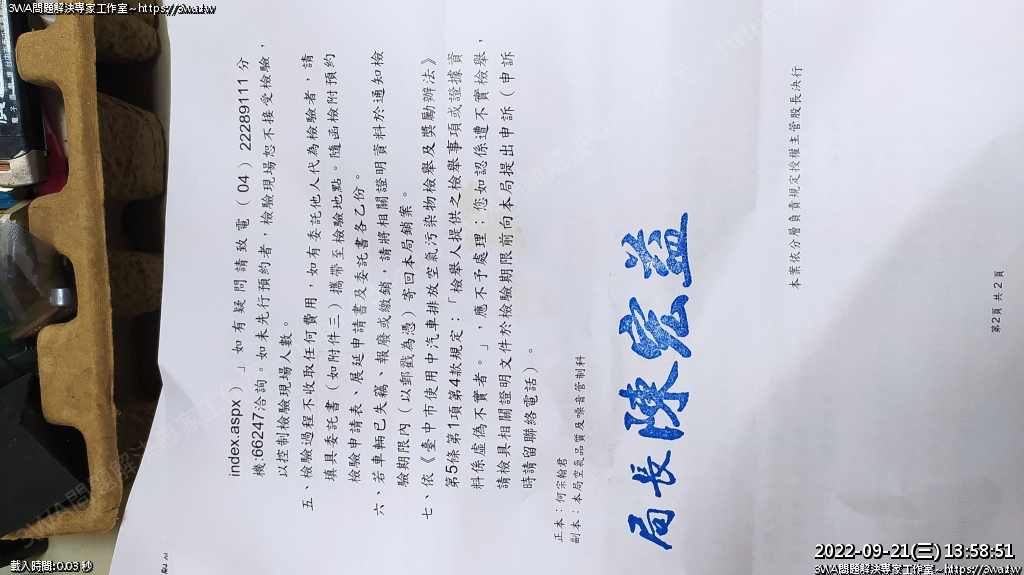 3WA問題解決專家工作室~https://3wa.tw
index.aspx）。」如有疑問請致電（04）22289111分
機:66247洽詢。如未先行預約者，檢驗現場恕不接受檢驗，
以控制檢驗現場人數。
五、檢驗過程不收取任何費用，如有委託他人代為檢驗者，請
填具委託書（如附件三）攜帶至檢驗地點。隨函檢附預約
檢驗申請表、展延申請書及委託書各乙份。
六、若車輛已失竊、報廢或繳銷，請將相關證明資料於通知檢
驗期限內（以郵戳為憑）寄回本局銷案。
七、依《臺中市使用中汽車排放空氣污染物檢舉及獎勵辦法》
第5條第1項第4款規定：「檢舉人提供之檢舉事項或證據資
料係虛偽不實者。」，應不予處理；您如認係遭不實檢舉，
請檢具相關證明文件於檢驗期限前向本局提出申訴（申訴
時請留聯絡電話）。
正本：何宗翰君
副本：本局空氣品質及噪音管制科
局長陳宏益
本案依分層負責規定授權主管股長決行
第2頁 共2頁
2022-09-21(三) 13:58:51
載入時間:0.03 秒
3WA問題解決專家工作室~https://3wa.tw